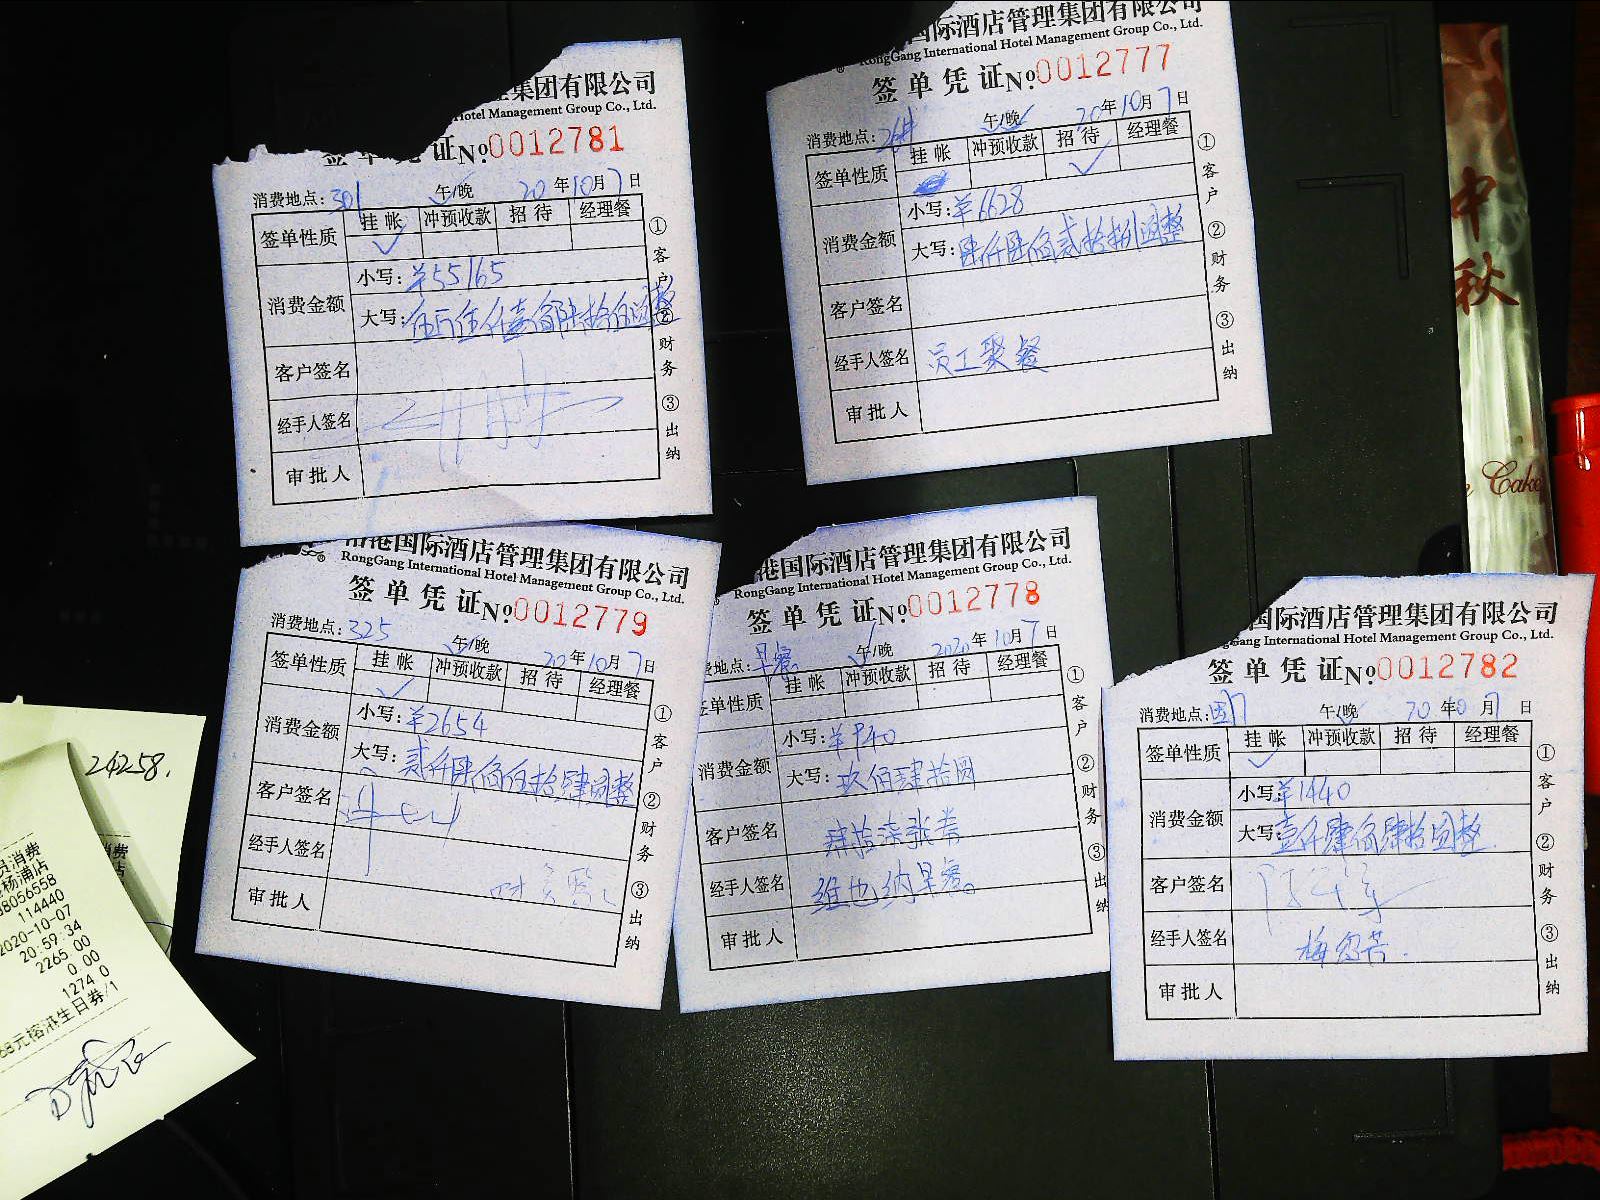 集团有限公司
Hotel Management Group Co., Ltd.
签单凭证No.0012781
消费地点:301 午/晚 20年10月7日
签单性质 挂帐 冲预收款 招待 经理餐
消费金额 小写:¥55165
大写:伍万伍仟壹佰陆拾伍圆整
客户签名
经手人签名
审批人
①客户 ②财务 ③出纳
国际酒店管理集团有限公司
RongGang International Hotel Management Group Co., Ltd.
签单凭证No.0012777
消费地点:26# 午/晚 20年10月7日
签单性质 挂帐 冲预收款 招待 经理餐
消费金额 小写:¥6628
大写:陆仟陆佰贰拾捌圆整
客户签名
经手人签名 员工聚餐
审批人
①客户 ②财务 ③出纳
中秋
Cake
港国际酒店管理集团有限公司
RongGang International Hotel Management Group Co., Ltd.
签单凭证No.0012779
消费地点:325 午/晚 20年10月7日
签单性质 挂帐 冲预收款 招待 经理餐
消费金额 小写:¥2654
大写:贰仟陆佰伍拾肆圆整
客户签名
经手人签名
审批人
①客户 ②财务 ③出纳
港国际酒店管理集团有限公司
RongGang International Hotel Management Group Co., Ltd.
签单凭证No.0012778
费地点:早餐 午/晚 2020年10月7日
签单性质 挂帐 冲预收款 招待 经理餐
消费金额 小写:¥940
大写:玖佰肆拾圆
客户签名 肆拾柒张券
经手人签名 维也纳早餐。
审批人
①客户 ②财务 ③出纳
国际酒店管理集团有限公司
Gang International Hotel Management Group Co., Ltd.
签单凭证No.0012782
消费地点: 午/晚 20年10月7日
签单性质 挂帐 冲预收款 招待 经理餐
消费金额 小写:¥1440
大写:壹仟肆佰肆拾圆整
客户签名
经手人签名
审批人
①客户 ②财务 ③出纳
24258.
消费
店
员消费
杨浦店
38056558
114440
2020-10-07
20:59:34
2265.00
0.00
1274.0
68元榕港生日券/1